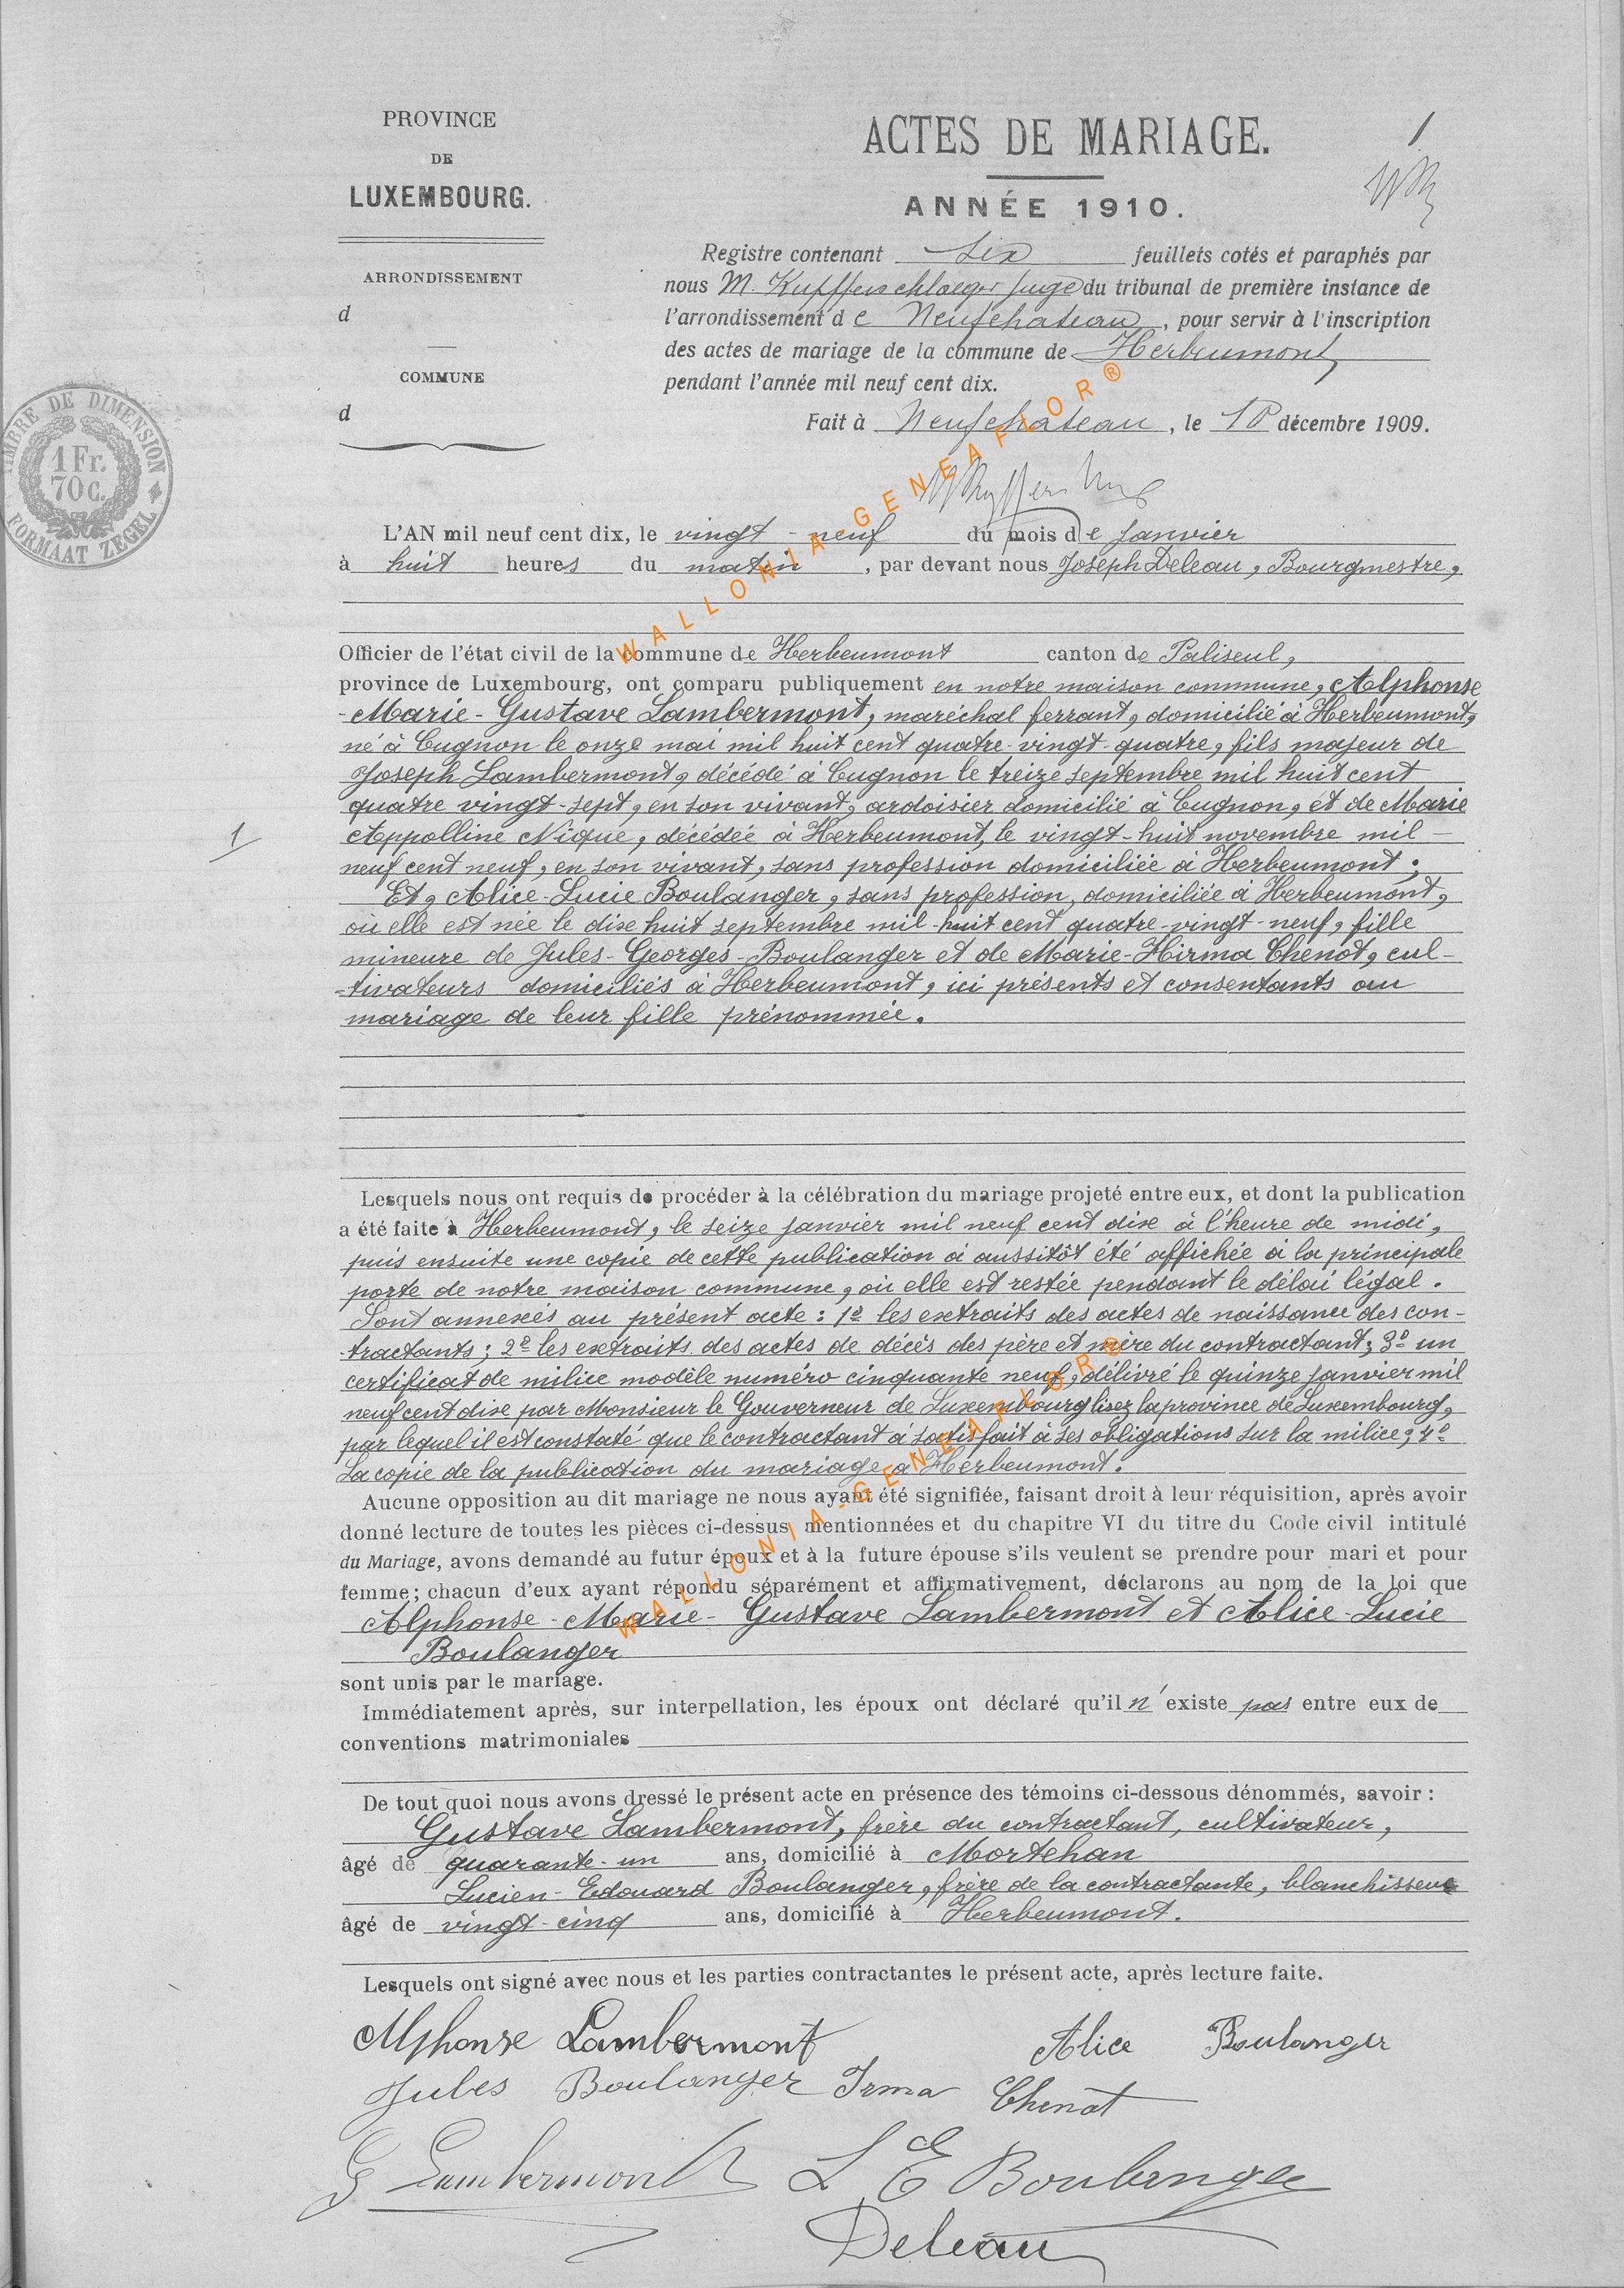 PROVINCE
DE
LUXEMBOURG.
ARRONDISSEMENT
d
COMMUNE
d
TIMBRE DE DIMENSION
1 Fr.
70 C.
FORMAAT ZEGEL
ACTES DE MARIAGE.
1
ANNÉE 1910.
Registre contenant six feuillets cotés et paraphés par
nous M. Kufferschlaeger Juge du tribunal de première instance de
l'arrondissement de Neufchateau, pour servir à l'inscription
des actes de mariage de la commune de Herbeumont
pendant l'année mil neuf cent dix.
Fait à Neufchateau, le décembre 1909.
L'AN mil neuf cent dix, le vingt-neuf du mois de Janvier
à huit heures du matin, par devant nous Joseph Deleau, Bourgmestre,
Officier de l'état civil de la commune de Herbeumont canton de Paliseul,
province de Luxembourg, ont comparu publiquement en notre maison commune, Alphonse
-Marie-Gustave Lambermont, maréchal ferrant, domicilié à Herbeumont,
né à Cugnon le onze mai mil huit cent quatre-vingt-quatre, fils majeur de
Joseph Lambermont, décédé à Cugnon le treize septembre mil huit cent
quatre vingt-sept, en son vivant, ardoisier domicilié à Cugnon, et de Marie
1
Appolline Nique, décédée à Herbeumont, le vingt-huit novembre mil –
neuf cent neuf, en son vivant, sans profession domiciliée à Herbeumont;
Et, Alice-Lucie Boulanger, sans profession, domiciliée à Herbeumont,
où elle est née le dixe huit septembre mil-huit cent quatre-vingt-neuf, fille
mineure de Jules-Georges-Boulanger et de Marie-Hirma Chenot, cul-
-tivateurs domiciliés à Herbeumont, ici présents et consentants au
mariage de leur fille prénommée.
Lesquels nous ont requis de procéder à la célébration du mariage projeté entre eux, et dont la publication
a été faite à Herbeumont, le seize janvier mil neuf cent dixe à l'heure de midi,
puis ensuite une copie de cette publication à aussitôt été affichée à la principale
porte de notre maison commune, où elle est restée pendant le délai légal.
Sont annexés au présent acte: 1º les extraits des actes de naissance des con-
-tractants; 2º les extraits des actes de décès des père et mère du contractant; 3º un
certificat de milice modèle numéro cinquante neuf, délivré le quinze janvier mil
neuf cent dixe par Monsieur le Gouverneur de Luxembourg lisez la province de Luxembourg,
par lequel il est constaté que le contractant à satisfait à ses obligations sur la milice; 4º
La copie de la publication du mariage à Herbeumont.
Aucune opposition au dit mariage ne nous ayant été signifiée, faisant droit à leur réquisition, après avoir
donné lecture de toutes les pièces ci-dessus mentionnées et du chapitre VI du titre du Code civil intitulé
du Mariage, avons demandé au futur époux et à la future épouse s'ils veulent se prendre pour mari et pour
femme; chacun d'eux ayant répondu séparément et affirmativement, déclarons au nom de la loi que
Alphonse-Marie-Gustave Lambermont et Alice-Lucie
Boulanger
sont unis par le mariage.
Immédiatement après, sur interpellation, les époux ont déclaré qu'il n'existe pas entre eux de
conventions matrimoniales
De tout quoi nous avons dressé le présent acte en présence des témoins ci-dessous dénommés, savoir :
Gustave Lambermont, frère du contractant, cultivateur,
âgé de quarante-un ans, domicilié à Mortehan
Lucien-Edouard Boulanger, frère de la contractante, blanchisseur
âgé de vingt-cinq ans, domicilié à Herbeumont.
Lesquels ont signé avec nous et les parties contractantes le présent acte, après lecture faite.
Alphonse Lambermont Alice Boulanger
Jules Boulanger Irma Chenot
G Lambermont L E Boulanger
Deleau
WALLONIA-GENEAFLOR®
WALLONIA-GENEAFLOR®